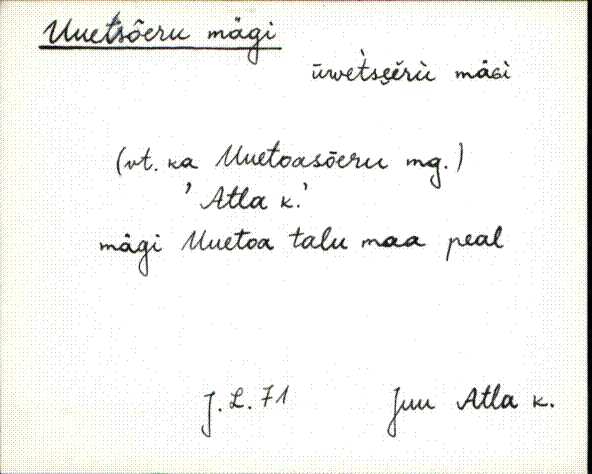 Uuetsõeru mägi
ūwèt̀sẹẹ̆rù mäɢì
(vt. ka Uuetoasõeru mg.)
'Atla k.'
mägi Uuetoa talu maa peal
J. L. 71 Juu Atla k.